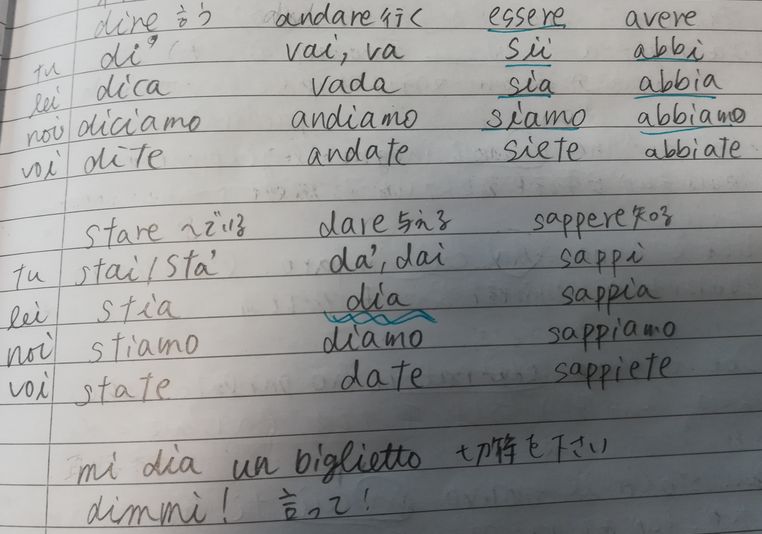 dire 言う andare 行く essere avere
tu di' vai, va sii abbi
lei dica vada sia abbia
noi diciamo andiamo siamo abbiamo
voi dite andate siete abbiate
stare 〜でいる dare 与える sappere 知る
tu stai/sta' da', dai sappi
lei stia dia sappia
noi stiamo diamo sappiamo
voi state date sappiete
mi dia un biglietto 切符を下さい
dimmi! 言って!